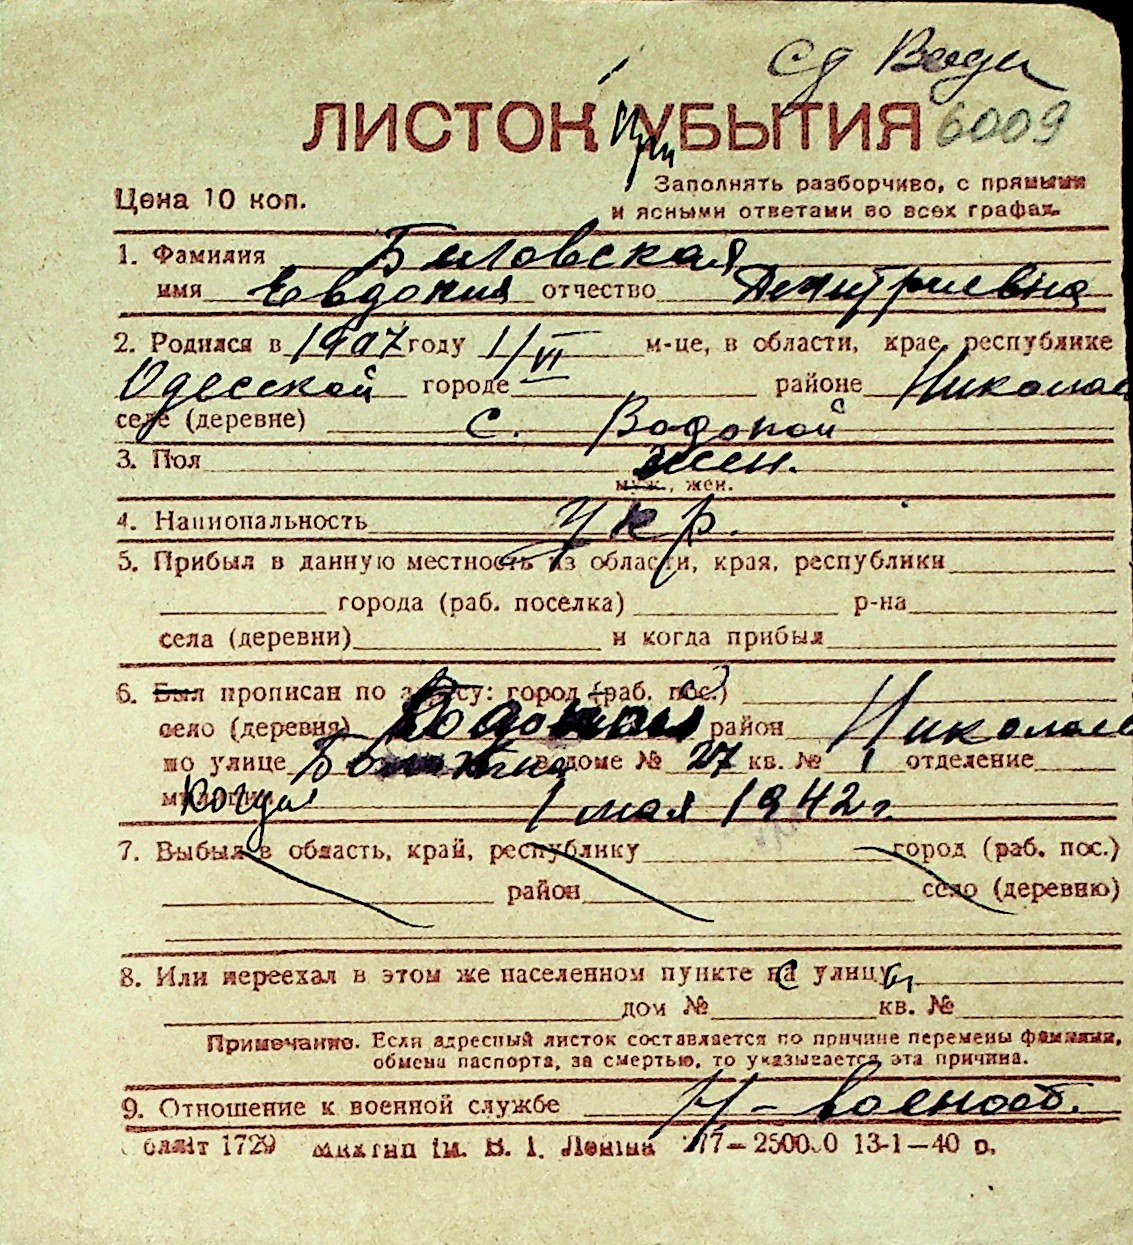 Сд Води
ЛИСТОК УБЫТИЯ 6009
Цена 10 коп.
Заполнять разборчиво, с прямыми
и ясными ответами во всех графах.
1. Фамилия Биловская
имя Евдокия отчество Дмитриевна
2. Родился в 1907 году 1/VI м-це, в области, крае, республике
Одесской городе районе Николаев
селе (деревне) с. Водопой
3. Пол жен.
муж., жен.
4. Национальность Укр.
5. Прибыл в данную местность из области, края, республики
города (раб. поселка) р-на
села (деревни) и когда прибыл
6. Был прописан по адресу: город (раб. пос.)
село (деревня) Водопой район Николаев
по улице в доме № 27 кв. № 1 отделение
милиции Когда 1 мая 1942 г.
7. Выбыл в область, край, республику город (раб. пос.)
район село (деревню)
8. Или переехал в этом же населенном пункте на улицу
дом № кв. №
Примечание. Если адресный листок составляется по причине перемены фамилии,
обмена паспорта, за смертью, то указывается эта причина.
9. Отношение к военной службе Н-военооб.
1729 ім. В. І. Леніна 13-1-40 р.